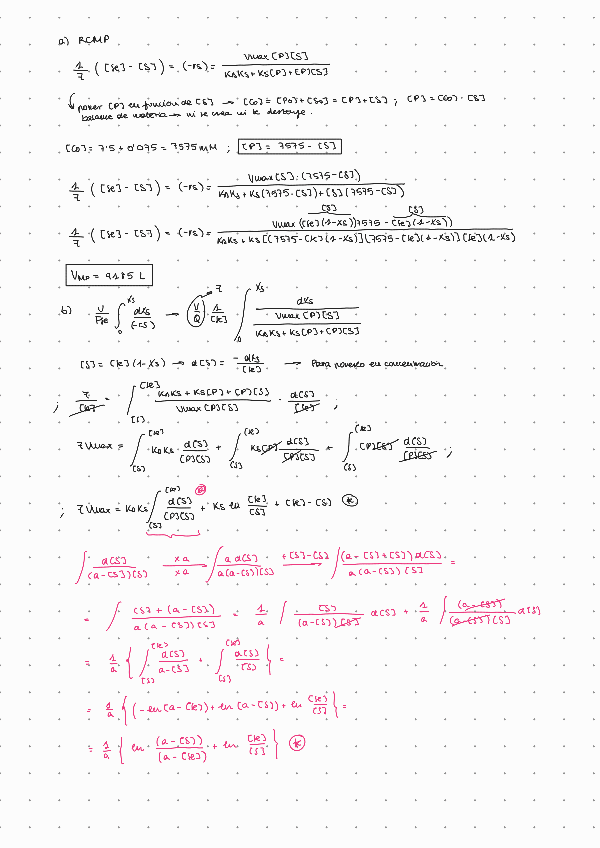 a) RCMP
1/τ ([Se] - [S]) = (-rs) = Vmax [P][S] / KAKs + Ks[P] + [P][S]
poner [P] en función de [S] → [C0] = [P0] + [S0] = [P] + [S] ; [P] = [C0] - [S]
balance de materia → ni se crea ni se destruye.
[C0] = 7'5 + 0'075 = 7'575 mM ; [P] = 7'575 - [S]
1/τ ([Se] - [S]) = (-rs) = Vmax [S] · (7'575 - [S]) / KAKs + Ks (7'575 - [S]) + [S] (7'575 - [S])
[S] [S]
1/τ ([Se] - [S]) = (-rs) = Vmax ([Se] (1-Xs)) 7'575 - [Se] (1-Xs)) / KAKs + Ks [(7'575 - [Se] (1-Xs)] [7'575 - [Se] (1-Xs)] [Se] (1-Xs)
VMP = 9'185 L
b) V/Fse ∫₀^Xs dXs/(-rs) → (V/Q) τ · 1/[Se] ∫₀^Xs dXs / (Vmax [P][S] / KAKs + Ks[P] + [P][S])
[S] = [Se] (1-Xs) → d[S] = -dXs/[Se] → Para ponerlo en concentración.
; τ/[Se] = ∫[S]^[Se] KAKs + Ks[P] + [P][S] / Vmax [P][S] · d[S]/[Se] ;
τ Vmax = ∫[S]^[Se] KAKs · d[S]/[P][S] + ∫[S]^[Se] Ks[P] d[S]/[P][S] + ∫[S]^[Se] [P][S] d[S]/[P][S] ;
; τ Vmax = KAKs ∫[S]^[Se] d[S]/[P][S] * + Ks ln [Se]/[S] + [Se] - [S] *
∫ d[S]/(a-[S])[S] xa/xa ∫ a d[S]/a(a-[S])[S] +[S]-[S] ∫ (a-[S]+[S]) d[S]/a(a-[S])[S] =
= ∫ [S] + (a-[S])/a(a-[S])[S] = 1/a ∫ [S]/(a-[S])[S] d[S] + 1/a ∫ (a-[S])/(a-[S])[S] d[S]
= 1/a { ∫[S]^[Se] d[S]/a-[S] + ∫[S]^[Se] d[S]/[S] } =
= 1/a { (-ln [a-[Se]) + ln (a-[S]) + ln [Se]/[S] } =
= 1/a { ln · (a-[S])/(a-[Se]) + ln [Se]/[S] } *